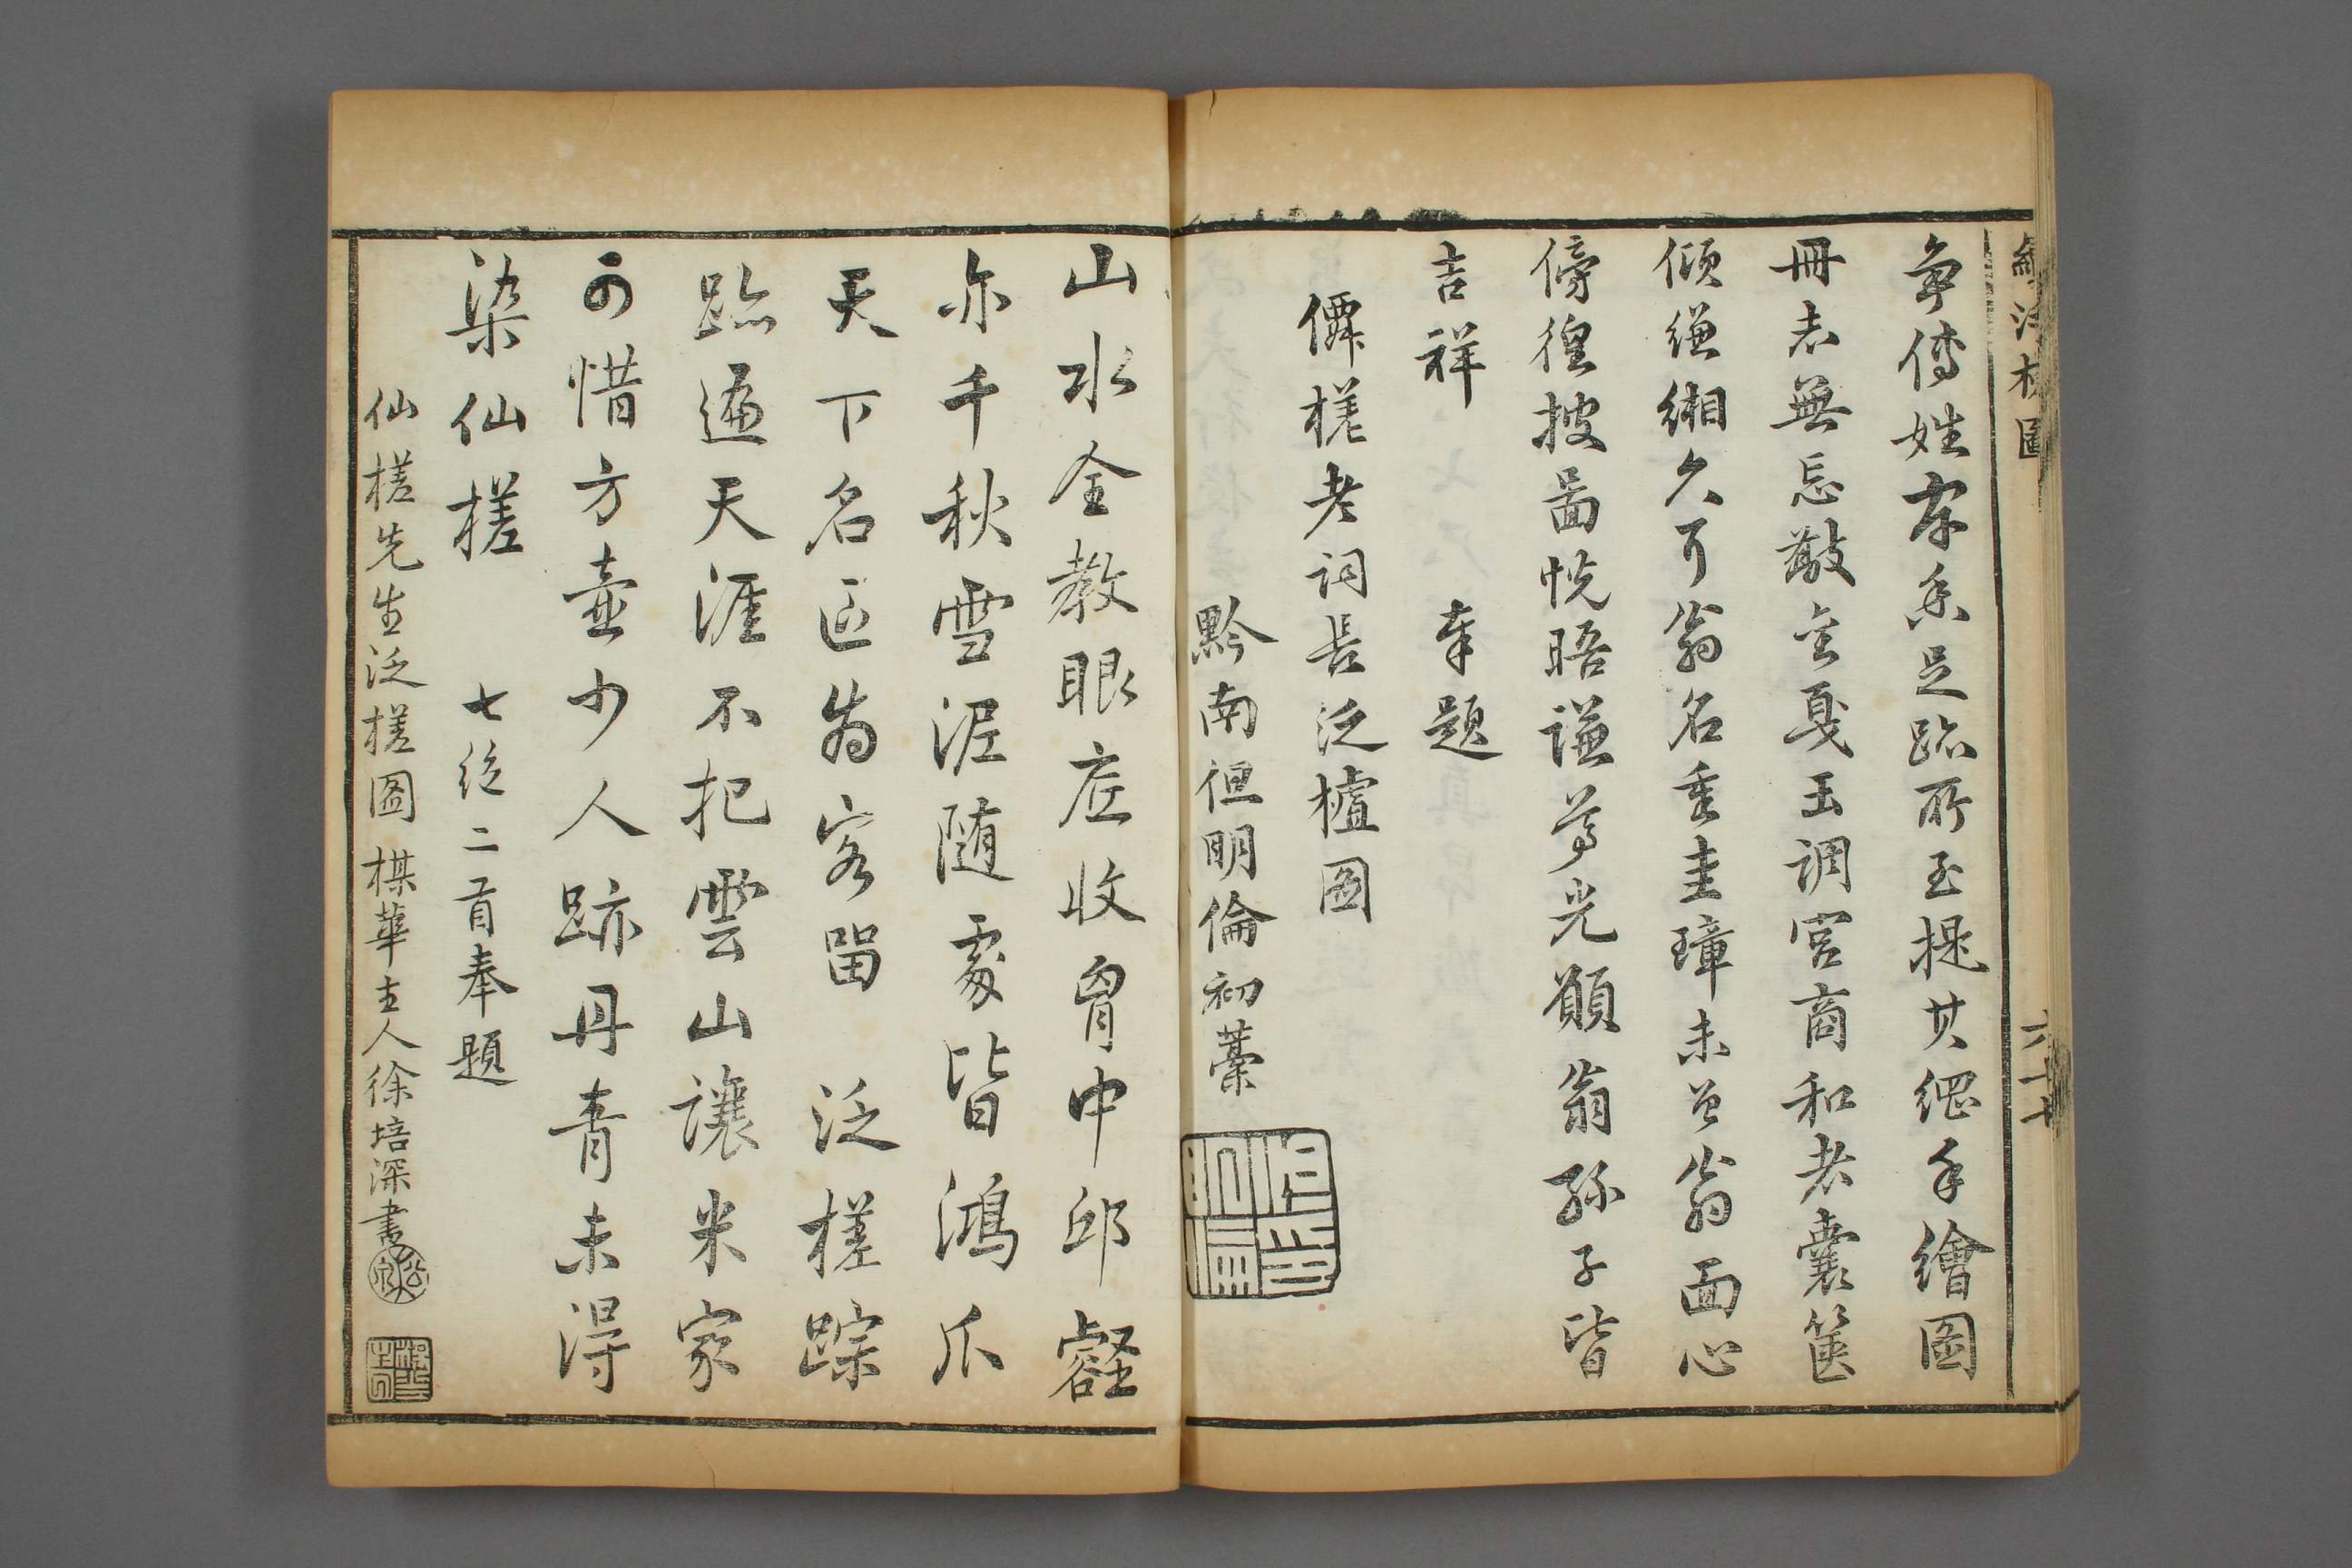 爭傳姓字香足跡所至提其綱手繪圖
冊志無忘敲金戛玉調宮商和者囊篋
傾縑緗久耳翁名重圭璋未見翁面心
傍徨披圖恍晤謙尊光願翁孫子皆
吉祥　奉題
僊槎老詞長泛樝圖
黔南但明倫初藁
山水全教眼底收胷中邱壑
亦千秋雪泥隨處皆鴻爪
天下名區為客留　泛槎踪
跡遍天涯不把雲山讓米家
可惜方壺少人跡丹青未得
染仙槎　七絕二首奉題
仙槎先生泛槎圖　棋華主人徐培深書
續泛槎圖
六十七